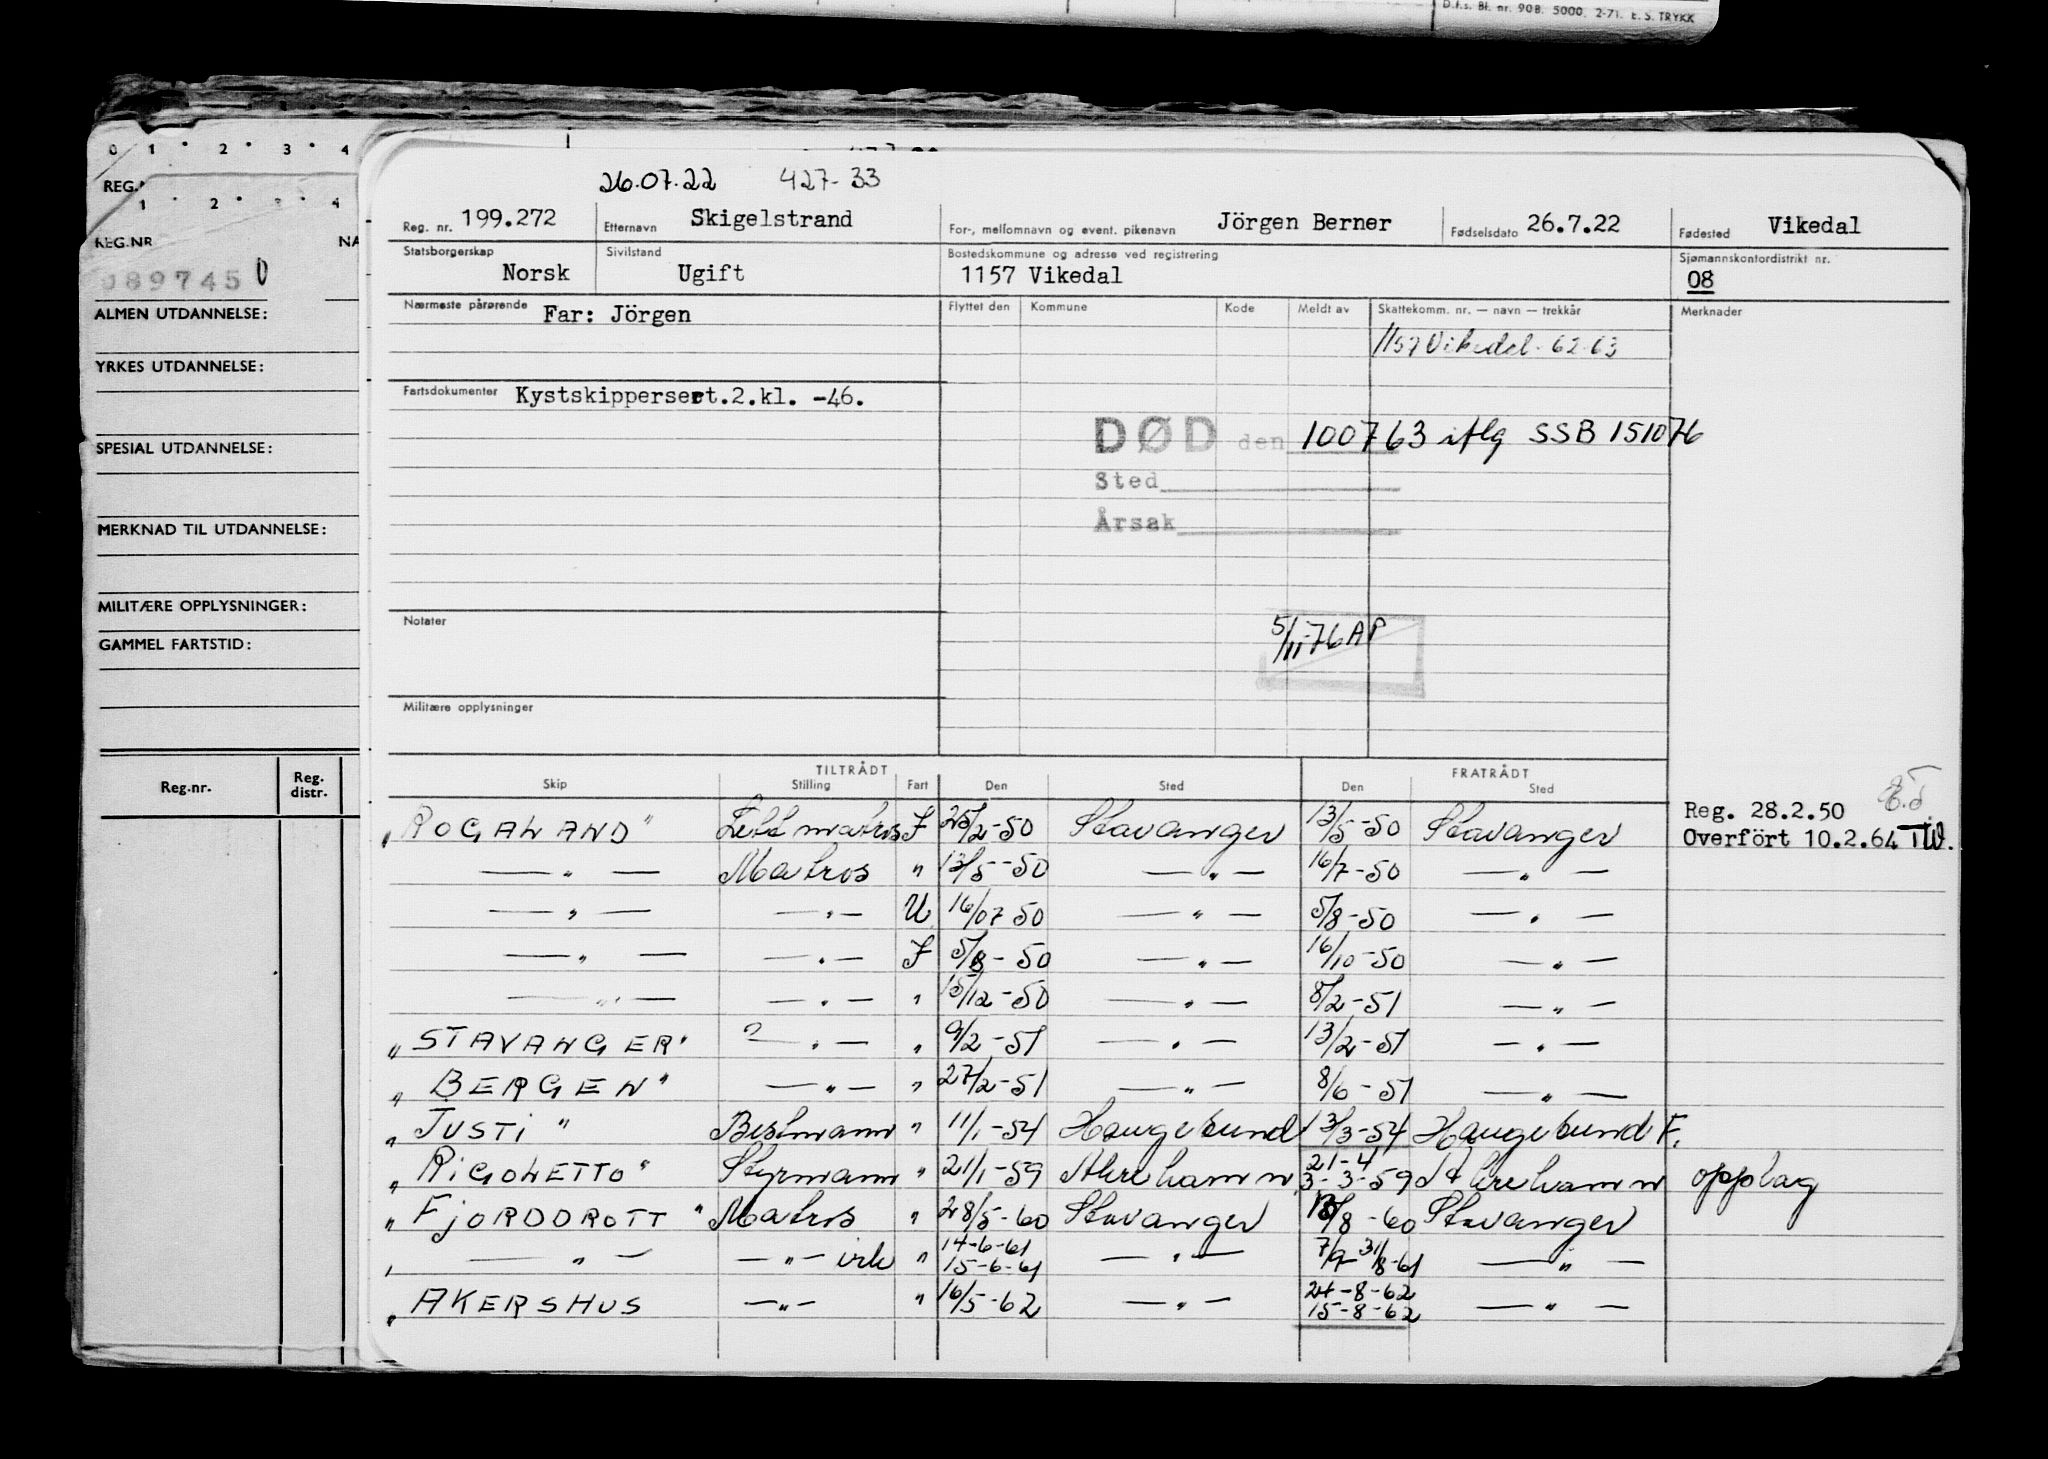 D.f.s. Bl. nr. 90B. 5000. 2-71. E. S. TRYKK
0 1 2 3 4
REG.
1 2 3 4
REG.NR NA
089745 0
ALMEN UTDANNELSE:
YRKES UTDANNELSE:
SPESIAL UTDANNELSE:
MERKNAD TIL UTDANNELSE:
MILITÆRE OPPLYSNINGER:
GAMMEL FARTSTID:
Reg.nr. Reg. distr.
26.07.22 427-33
Reg. nr. 199.272 Etternavn Skigelstrand For-, mellomnavn og event. pikenavn Jörgen Berner Fødselsdato 26.7.22 Fødested Vikedal
Statsborgerskap Norsk Sivilstand Ugift Bostedskommune og adresse ved registrering 1157 Vikedal Sjømannskontordistrikt nr. 08
Nærmeste pårørende Far: Jörgen Flyttet den Kommune Kode Meldt av Skattekomm. nr. — navn — trekkår Merknader
1157 Vikedal - 62-63
Fartsdokumenter Kystskippersert.2.kl. -46.
DØD den 100763 iflg SSB 151076
Sted
Årsak
Notater
5/11-76 AP
Militære opplysninger
TILTRÅDT FRATRÅDT
Skip Stilling Fart Den Sted Den Sted
Reg. 28.2.50
Overfört 10.2.64 TW.
"ROGALAND" Lettmatros I 25/2-50 Stavanger 13/5-50 Stavanger
— " — Matros " 13/5-50 — " — 16/7-50 — " —
— " — — " — U 16/07 50 — " — 5/8-50 — " —
— " — — " — I 5/8-50 — " — 16/10-50 — " —
— " — — " — " 15/12-50 — " — 8/2-51 — " —
"STAVANGER" ? — " — " 9/2-51 — " — 13/2-51 — " —
"BERGEN" — " — " 27/2-51 — " — 8/6-51 — " —
"JUSTI" Bestmann " 11/1-54 Haugesund 13/3-54 Haugesund F.
"RIGOLETTO" Styrmann " 21/1-59 Åkrehamn 21-4 3-3-59 Åkrehamn opplag
"FJORDDROTT" Matros " 28/5-60 Stavanger 18/8-60 Stavanger
" — " — — " — " 14-6-61 15-6-61 — " — 7/9 31/8-61 — " —
"AKERSHUS — " — " 16/5-62 — " — 24-8-62 15-8-62 — " —